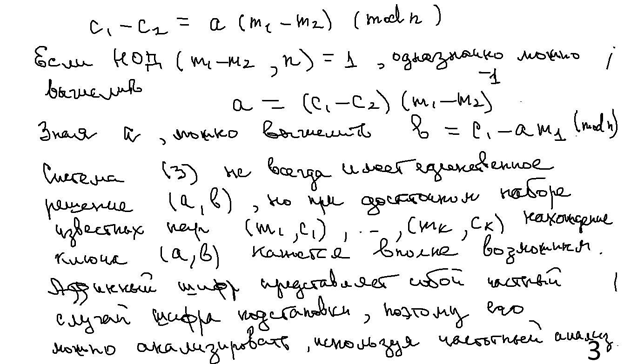 c₁-c₂ = a (m₁-m₂) (mod n)
Если НОД (m₁-m₂, n) = 1, однозначно можно
вычислить a = (c₁-c₂)(m₁-m₂)⁻¹
Зная a, можно вычислить b = c₁-am₁ (mod n)
Система (3) не всегда имеет единственное
решение (a,b), но при достаточном наборе
известных пар (m₁,c₁), .., (mₖ,cₖ) нахождение
ключа (a,b) кажется вполне возможным.
Аффинный шифр представляет собой частный
случай шифра подстановки, поэтому его
можно анализировать, используя частотный анализ.
3